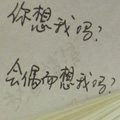 你想我吗？
会偶而想我吗？